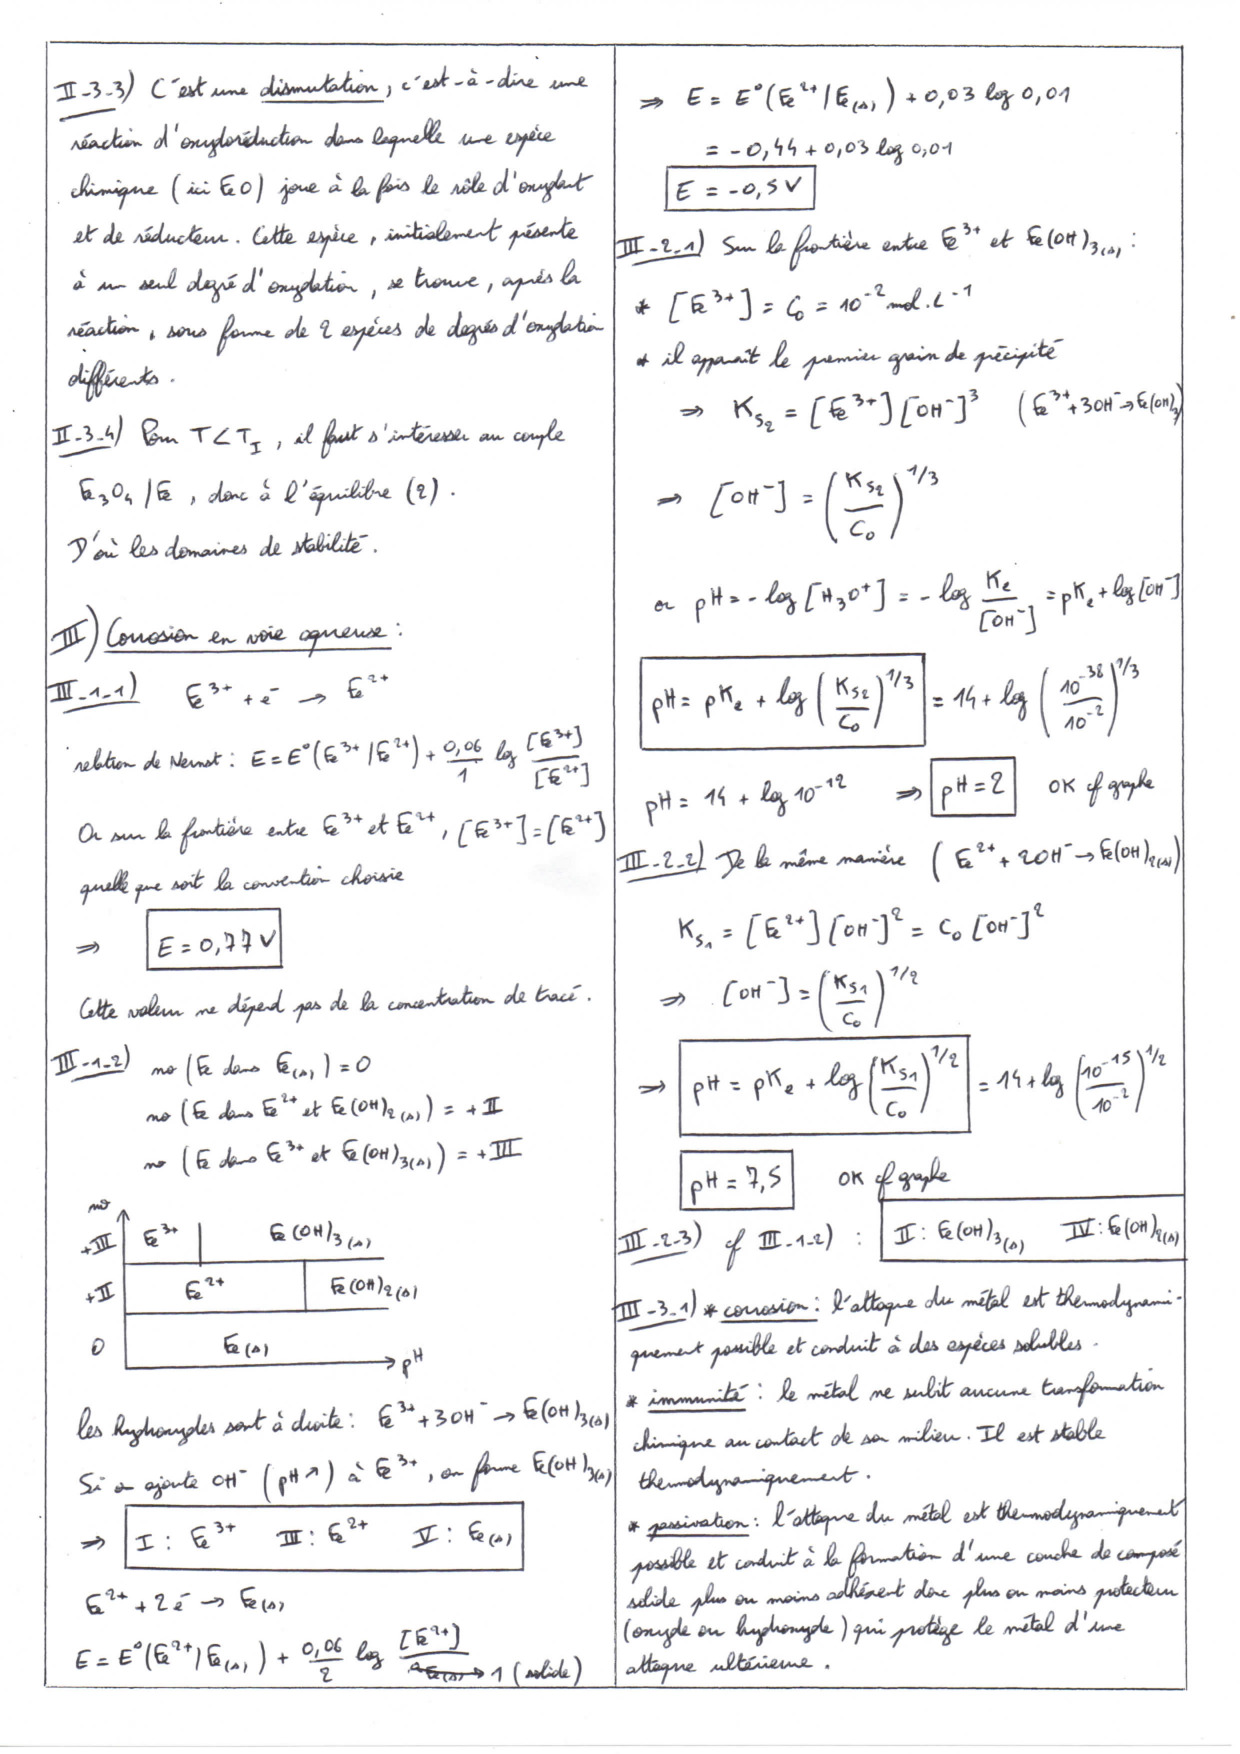 II-3-3) C'est une dismutation, c'est-à-dire une
réaction d'oxydoréduction dans laquelle une espèce
chimique (ici FeO) joue à la fois le rôle d'oxydant
et de réducteur. Cette espèce, initialement présente
à un seul degré d'oxydation, se trouve, après la
réaction, sous forme de 2 espèces de degrés d'oxydation
différents.
II-3-4) Pour T < T_I, il faut s'intéresser au couple
Fe₃O₄/Fe, donc à l'équilibre (2).
D'où les domaines de stabilité.
III) Corrosion en voie aqueuse :
III-1-1) Fe³⁺ + e⁻ → Fe²⁺
relation de Nernst : E = E°(Fe³⁺/Fe²⁺) + 0,06/1 log [Fe³⁺]/[Fe²⁺]
Or sur la frontière entre Fe³⁺ et Fe²⁺, [Fe³⁺] = [Fe²⁺]
quelle que soit la convention choisie
⇒ E = 0,77 V
Cette valeur ne dépend pas de la concentration de tracé.
III-1-2) no (Fe dans Fe(s)) = 0
no (Fe dans Fe²⁺ et Fe(OH)₂(s)) = +II
no (Fe dans Fe³⁺ et Fe(OH)₃(s)) = +III
no
+III Fe³⁺ Fe(OH)₃(s)
+II Fe²⁺ Fe(OH)₂(s)
0 Fe(s)
pH
les hydroxydes sont à droite : Fe³⁺ + 3OH⁻ → Fe(OH)₃(s)
Si on ajoute OH⁻ (pH ↗) à Fe³⁺, on forme Fe(OH)₃(s)
⇒ I : Fe³⁺ III : Fe²⁺ V : Fe(s)
Fe²⁺ + 2e⁻ → Fe(s)
E = E°(Fe²⁺/Fe(s)) + 0,06/2 log [Fe²⁺]/1 (solide)
⇒ E = E°(Fe²⁺/Fe(s)) + 0,03 log 0,01
= -0,44 + 0,03 log 0,01
E = -0,5 V
III-2-1) Sur la frontière entre Fe³⁺ et Fe(OH)₃(s) :
* [Fe³⁺] = C₀ = 10⁻² mol.L⁻¹
* il apparaît le premier grain de précipité
⇒ Ks₂ = [Fe³⁺][OH⁻]³ (Fe³⁺ + 3OH⁻ → Fe(OH)₃)
⇒ [OH⁻] = (Ks₂/C₀)^1/3
or pH = -log [H₃O⁺] = -log Ke/[OH⁻] = pKe + log [OH⁻]
pH = pKe + log (Ks₂/C₀)^1/3 = 14 + log (10⁻³⁸/10⁻²)^1/3
pH = 14 + log 10⁻¹² ⇒ pH = 2 OK cf graphe
III-2-2) De la même manière (Fe²⁺ + 2OH⁻ → Fe(OH)₂(s))
Ks₁ = [Fe²⁺][OH⁻]² = C₀ [OH⁻]²
⇒ [OH⁻] = (Ks₁/C₀)^1/2
⇒ pH = pKe + log (Ks₁/C₀)^1/2 = 14 + log (10⁻¹⁵/10⁻²)^1/2
pH = 7,5 OK cf graphe
III-2-3) cf III-1-2) : II : Fe(OH)₃(s) IV : Fe(OH)₂(s)
III-3-1) * corrosion : l'attaque du métal est thermodynami-
quement possible et conduit à des espèces solubles.
* immunité : le métal ne subit aucune transformation
chimique au contact de son milieu. Il est stable
thermodynamiquement.
* passivation : l'attaque du métal est thermodynamiquement
possible et conduit à la formation d'une couche de composé
solide plus ou moins adhérent donc plus ou moins protecteur
(oxyde ou hydroxyde) qui protège le métal d'une
attaque ultérieure.